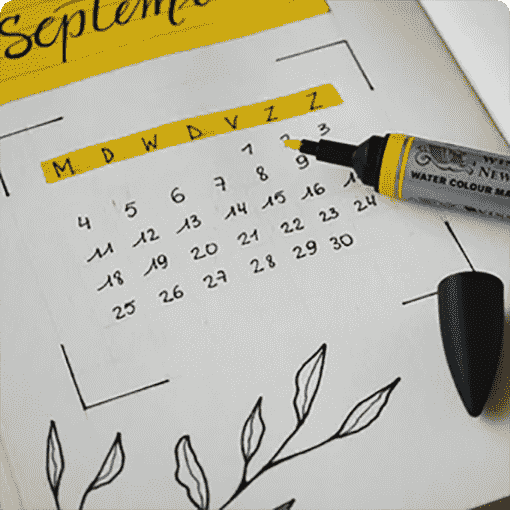 Septem
M D W D V Z Z
1 2 3
4 5 6 7 8 9
11 12 13 14 15 16
18 19 20 21 22 23 24
25 26 27 28 29 30
NEW
WATER COLOUR MA